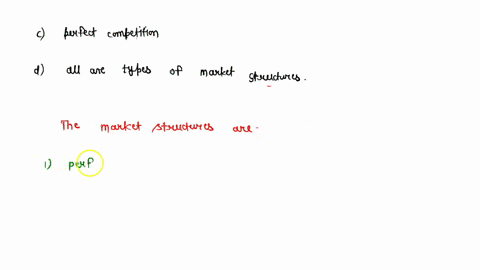 c) perfect competition
d) all are types of market structures.
The market structures are.
1) perf